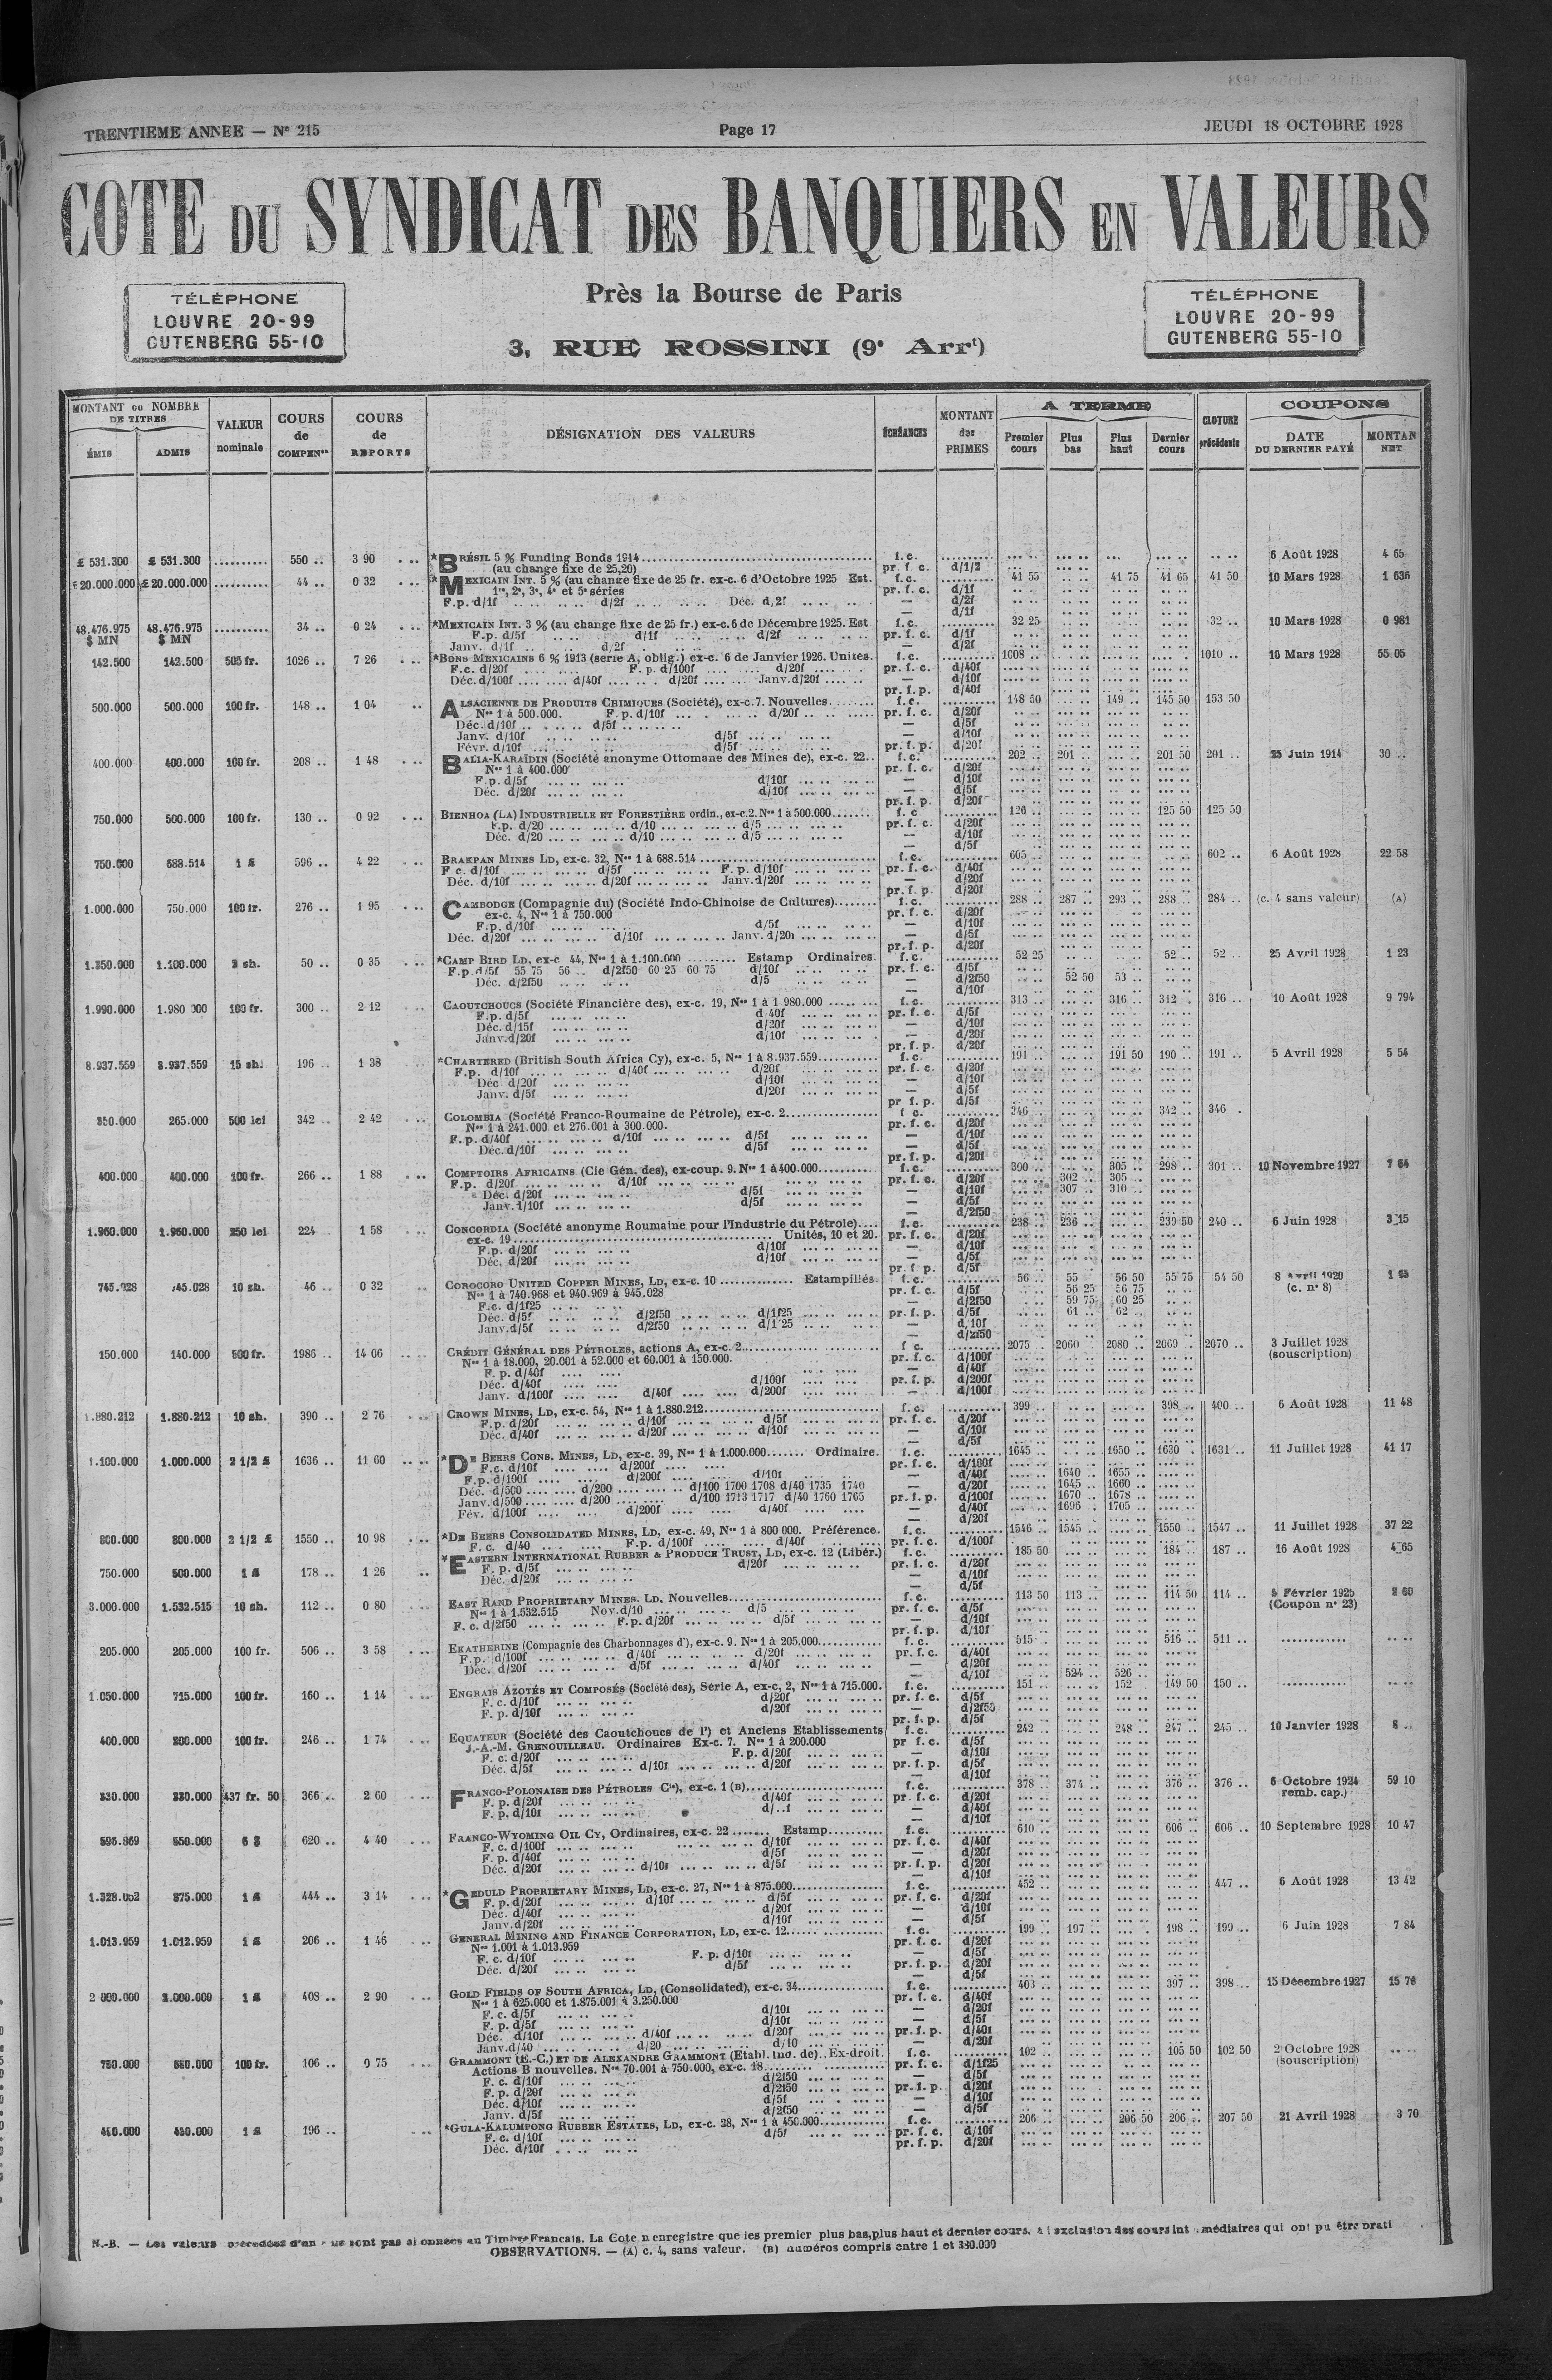 TRENTIEME ANNEE — Nº 215
Page 17
JEUDI 18 OCTOBRE 1928
COTE DU SYNDICAT DES BANQUIERS EN VALEURS
Près la Bourse de Paris
3, RUE ROSSINI (9e Arrt)
TÉLÉPHONE
LOUVRE 20-99
GUTENBERG 55-10
TÉLÉPHONE
LOUVRE 20-99
GUTENBERG 55-10
MONTANT ou NOMBRE DE TITRES
ÉMIS
ADMIS
VALEUR nominale
COURS de COMPENon
COURS de REPORTS
DÉSIGNATION DES VALEURS
ÉCHÉANCES
MONTANT des PRIMES
A TERME
Premier cours
Plus bas
Plus haut
Dernier cours
CLOTURE précédente
COUPONS
DATE DU DERNIER PAYÉ
MONTAN NET
£ 531.300 £ 531.300 .......... 550 .. 3 90 *BRÉSIL 5 % Funding Bonds 1914 f.c. 6 Août 1928 4 65
(au change fixe de 25,20) pr. f. c. d/1/2
20.000.000 £ 20.000.000 .......... 44 .. 0 32 *MEXICAIN INT. 5 % (au change fixe de 25 fr. ex-c. 6 d'Octobre 1925 Est. f.c. 41 55 41 75 41 65 41 50 10 Mars 1928 1 636
1re, 2e, 3e, 4e et 5e séries pr. f. c. d/1f
F.p. d/1f d/2f Déc. d/2f — d/2f
— d/1f
48.476.975 $ MN 48.476.975 $ MN .......... 34 .. 0 24 *MEXICAIN INT. 3 % (au change fixe de 25 fr.) ex-c. 6 de Décembre 1925. Est f.c. 32 25 32 .. 10 Mars 1928 0 981
F.p. d/5f d/1f d/2f pr. f. c. d/1f
Janv. d/1f d/2f — d/2f
142.500 142.500 505 fr. 1026 .. 7 26 *BONS MEXICAINS 6 % 1913 (serie A, oblig.) ex-c. 6 de Janvier 1926. Unites. f.c. 1008 .. 1010 .. 10 Mars 1928 55 05
F.c. d/20f F. p. d/100f d/20f pr. f. c. d/40f
Déc. d/100f d/40f d/20f Janv. d/20f — d/10f
pr. f. p. d/40f
500.000 500.000 100 fr. 148 .. 1 04 ALSACIENNE DE PRODUITS CHIMIQUES (Société), ex-c. 7. Nouvelles f.c. 148 50 149 .. 145 50 153 50
Nos 1 à 500.000. F. p. d/10f d/20f pr. f. c. d/20f
Déc. d/10f d/5f — d/5f
Janv. d/10f d/5f — d/10f
Févr. d/10f d/5f pr. f. p. d/20f
400.000 400.000 100 fr. 208 .. 1 48 BALIA-KARAÏDIN (Société anonyme Ottomane des Mines de), ex-c. 22.. f.c. 202 .. 201 .. 201 50 201 .. 25 Juin 1914 30 ..
Nos 1 à 400.000 pr. f. c. d/20f
F.p. d/5f d/10f — d/10f
Déc. d/20f d/10f — d/5f
pr. f. p. d/20f
750.000 500.000 100 fr. 130 .. 0 92 BIENHOA (LA) INDUSTRIELLE ET FORESTIÈRE ordin., ex-c. 2. Nos 1 à 500.000 f. c 126 .. 125 50 125 50
F.p. d/20 d/10 d/5 pr. f. c. d/20f
Déc. d/20 d/10 d/5 — d/10f
— d/5f
750.000 688.514 1 £ 596 .. 4 22 BRAKPAN MINES LD, ex-c. 32, Nos 1 à 688.514 f.c. 605 .. 602 .. 6 Août 1928 22 58
F c. d/10f d/5f F. p. d/10f pr. f. c. d/40f
Déc. d/10f d/20f Janv. d/20f — d/20f
pr. f. p. d/20f
1.000.000 750.000 100 fr. 276 .. 1 95 CAMBODGE (Compagnie du) (Société Indo-Chinoise de Cultures) f.c. 288 .. 287 .. 293 .. 288 .. 284 .. (c. 4 sans valeur) (A)
ex-c. 4, Nos 1 à 750.000 pr. f. c. d/20f
F.p. d/10f d/5f — d/10f
Déc. d/20f d/10f Janv. d/20f — d/5f
pr. f. p. d/20f
1.350.000 1.100.000 3 sh. 50 .. 0 35 *CAMP BIRD LD, ex-c 44, Nos 1 à 1.100.000 Estamp Ordinaires. f.c. 52 25 52 .. 52 .. 25 Avril 1928 1 23
F.p. d/5f 55 75 56 .. d/2f50 60 25 60 75 d/10f pr. f. c. d/5f
Déc. d/2f50 d/5 — d/2f50 52 50 53 ..
— d/10f
1.990.000 1.980 000 100 fr. 300 .. 2 12 CAOUTCHOUCS (Société Financière des), ex-c. 19, Nos 1 à 1 980.000 f.c. 313 .. 316 .. 312 .. 316 .. 10 Août 1928 9 794
F.p. d/5f d/40f pr. f. c. d/5f
Déc. d/15f d/20f — d/10f
Janv. d/20f d/10f — d/20f
pr. f. p. d/20f
8.937.559 8.937.559 15 sh. 196 .. 1 38 *CHARTERED (British South Africa Cy), ex-c. 5, Nos 1 à 8.937.559 f.c. 191 .. 191 50 190 .. 191 .. 5 Avril 1928 5 54
F.p. d/10f d/40f d/20f pr. f. c. d/20f
Déc d/20f d/10f — d/10f
Janv. d/5f d/20f — d/5f
pr f. p. d/5f
265.000 500 lei 342 .. 2 42 COLOMBIA (Société Franco-Roumaine de Pétrole), ex-c. 2 f c. 346 .. 342 .. 346 .
Nos 1 à 241.000 et 276.001 à 300.000. pr. f. c. d/20f
F. p. d/40f d/10f d/5f — d/10f
Déc. d/10f d/5f — d/5f
pr. f. p. d/20f
400.000 400.000 100 fr. 266 .. 1 88 COMPTOIRS AFRICAINS (Cie Gén. des), ex-coup. 9. Nos 1 à 400.000 f.c. 300 .. 305 .. 298 .. 301 .. 10 Novembre 1927
F.p. d/20f d/10f pr. f. c. d/20f 302 .. 305 ..
Déc. d/20f d/5f — d/10f 307 .. 310 ..
Janv. d/10f d/5f — d/5f
— d/2f50
1.960.000 1.960.000 250 lei 224 1 58 CONCORDIA (Société anonyme Roumaine pour l'Industrie du Pétrole) f.c. 238 .. 236 .. 239 50 240 .. 6 Juin 1928 3 15
ex-c. 19 Unités, 10 et 20. pr. f. c. d/20f
F.p. d/20f d/10f — d/10f
Déc. d/20f d/10f — d/5f
pr. f. p. d/5f
745.028 745.028 10 sh. 46 .. 0 32 COROCORO UNITED COPPER MINES, LD, ex-c. 10 Estampillés. f.c. 56 .. 55 56 50 55 75 54 50 8 Avril 1920
Nos 1 à 740.968 et 940.969 à 945.028 pr. f. c. d/5f 56 25 56 75 (c. nº 8)
F.c. d/1f25 — d/2f50 59 75 60 25
Déc. d/5f d/2f50 d/1f25 pr. f. p. d/5f 61 .. 62 ..
Janv. d/5f d/2f50 d/1f25 — d/10f
— d/2f50
150.000 140.000 500 fr. 1986 .. 14 06 CRÉDIT GÉNÉRAL DES PÉTROLES, actions A, ex-c. 2 f c. 2075 .. 2060 .. 2080 .. 2069 .. 2070 .. 3 Juillet 1928
Nos 1 à 18.000, 20.001 à 52.000 et 60.001 à 150.000. pr. f. c. d/100f (souscription)
F. p. d/40f — d/40f
Déc. d/40f d/100f pr. f. p. d/200f
Janv. d/100f d/40f d/200f — d/100f
1.880.212 1.880.212 10 sh. 390 .. 2 76 CROWN MINES, LD, ex-c. 54, Nos 1 à 1.880.212 f.c. 399 .. 398 .. 400 .. 6 Août 1928 11 48
F.p. d/20f d/10f d/5f pr. f. c. d/20f
Déc. d/40f d/20f d/10f — d/10f
— d/5f
1.100.000 1.000.000 2 1/2 £ 1636 .. 11 60 *DE BEERS CONS. MINES, LD, ex-c. 39, Nos 1 à 1.000.000 Ordinaire. f.c. 1645 .. 1650 .. 1630 .. 1631 .. 11 Juillet 1928 41 17
F.c. d/10f d/200f pr. f. c. d/100f
F.p. d/100f d/200f d/10f — d/40f 1640 .. 1655 ..
Déc. d/500 d/200 d/100 1700 1708 d/40 1735 1740 — d/20f 1645 .. 1660 ..
Janv. d/500 d/200 d/100 1713 1717 d/40 1760 1765 pr. f. p. d/100f 1670 .. 1678 ..
Fév. d/100f d/200f d/40f — d/40f 1696 .. 1705 ..
— d/20f
800.000 800.000 2 1/2 £ 1550 .. 10 98 *DE BEERS CONSOLIDATED MINES, LD, ex-c. 49, Nos 1 à 800 000. Préférence. f.c. 1546 .. 1545 .. 1550 .. 1547 .. 11 Juillet 1928 37 22
F. c. d/40 F.p. d/100f d/40f pr. f. c. d/100f
750.000 500.000 1 £ 178 .. 1 26 *EASTERN INTERNATIONAL RUBBER & PRODUCE TRUST, LD, ex-c. 12 (Libér.) f.c. 185 50 184 .. 187 .. 16 Août 1928 4 65
F. p. d/5f d/20f pr. f. c. d/20f
Déc. d/20f — d/10f
— d/5f
3.000.000 1.532.515 10 sh. 112 .. 0 80 EAST RAND PROPRIETARY MINES. LD, Nouvelles f.c. 113 50 113 .. 114 50 114 .. Février 1925
Nos 1 à 1.532.515 Nov. d/10 d/5 pr. f. c. d/5f (Coupon nº 23)
F. c. d/2f50 F.p. d/20f d/5f — d/10f
pr. f. p. d/10f
205.000 205.000 100 fr. 506 .. 3 58 EKATHERINE (Compagnie des Charbonnages d'), ex-c. 9. Nos 1 à 205.000 f. c. 515 .. 516 .. 511 ..
F.p. d/100f d/40f d/20f pr. f. c. d/40f
Déc. d/20f d/5f d/40f — d/20f
— d/10f 524 .. 526 ..
1.050.000 715.000 100 fr. 160 .. 1 14 ENGRAIS AZOTÉS ET COMPOSÉS (Société des), Serie A, ex-c. 2, Nos 1 à 715.000. f.c. 151 .. 152 149 50 150 ..
F. c. d/10f d/20f pr. f. c. d/5f
F. p. d/10f d/20f — d/2f50
pr. f. p. d/5f
400.000 200.000 100 fr. 246 .. 1 74 EQUATEUR (Société des Caoutchoucs de l') et Anciens Etablissements f. c. 242 .. 248 .. 247 .. 245 .. 10 Janvier 1928
J.-A.-M. GRENOUILLEAU. Ordinaires Ex-c. 7. Nos 1 à 200.000 pr f. c. d/5f
F. c. d/20f F.p. d/20f — d/10f
Déc. d/5f d/10f d/20f pr. f. p. d/5f
— d/10f
330.000 330.000 437 fr. 50 366 .. 2 60 FRANCO-POLONAISE DES PÉTROLES Cie), ex-c. 1 (B) f.c. 378 .. 374 .. 376 .. 376 .. 6 Octobre 1924 59 10
F. p. d/20f d/40f pr. f. c. d/20f remb. cap.)
F. p. d/10f — d/40f
— d/10f
596.869 550.000 6 $ 620 .. 4 40 FRANCO-WYOMING OIL CY, Ordinaires, ex-c. 22 Estamp. f.c. 610 .. 606 .. 606 .. 10 Septembre 1928 10 47
F. c. d/100f d/10f pr. f. c. d/40f
F. p. d/40f d/5f — d/20f
Déc. d/20f d/10f d/5f pr. f. p. d/20f
— d/10f
875.000 1 £ 444 .. 3 14 *GEDULD PROPRIETARY MINES, LD, ex-c. 27, Nos 1 à 875.000 f.c. 452 .. 447 .. 6 Août 1928 13 42
F. p. d/20f d/10f d/5f pr. f. c. d/20f
Déc. d/40f d/20f — d/10f
Janv. d/20f d/10f — d/5f
1.013.959 1.012.959 1 £ 206 .. 1 46 GENERAL MINING AND FINANCE CORPORATION, LD, ex-c. 12 f.c. 199 .. 197 .. 198 .. 199 .. 6 Juin 1928 7 84
Nos 1.001 à 1.013.959 pr. f. c. d/20f
F. c. d/10f F. p. d/10f — d/5f
Déc. d/20f d/5f pr. f. p. d/20f
— d/5f
2 000.000 2.000.000 1 £ 408 .. 2 90 GOLD FIELDS OF SOUTH AFRICA, LD, (Consolidated), ex-c. 34 f.c. 403 .. 397 .. 398 .. 15 Décembre 1927 15 76
Nos 1 à 625.000 et 1.875.001 à 3.250.000 pr. f. c. d/40f
F. c. d/5f d/10f — d/20f
F. p. d/5f d/10f — d/5f
Déc. d/10f d/40f d/20f pr. f. p. d/40f
Janv. d/40 d/20 d/10 — d/20f
750.000 100 fr. 106 .. 0 75 GRAMMONT (E.-C.) ET DE ALEXANDRE GRAMMONT (Etabl. Ind. de).. Ex-droit. f.c. 102 .. 105 50 102 50 2 Octobre 1928
Actions B nouvelles. Nos 70.001 à 750.000, ex-c. 18 pr. f. c. d/1f25 (souscription)
F. c. d/10f d/2f50 — d/5f
F. p. d/20f d/2f50 pr. f. p. d/20f
Déc. d/10f d/5f — d/10f
Janv. d/5f d/2f50 — d/5f
450.000 450.000 1 £ 196 .. *GULA-KALUMPONG RUBBER ESTATES, LD, ex-c. 28, Nos 1 à 450.000 f.c. 206 .. 206 50 206 .. 207 50 21 Avril 1928 3 70
F. c. d/10f d/5f pr. f. c. d/10f
Déc. d/10f pr. f. p. d/20f
N.-B. — Les valeurs précédées d'un * ne sont pas abonnées au Timbre Francais. La Cote n enregistre que les premier plus bas, plus haut et dernier cours, à l exclusion des cours int médiaires qui ont pu être prati
OBSERVATIONS. — (A) c. 4, sans valeur. (B) numéros compris entre 1 et 330.000